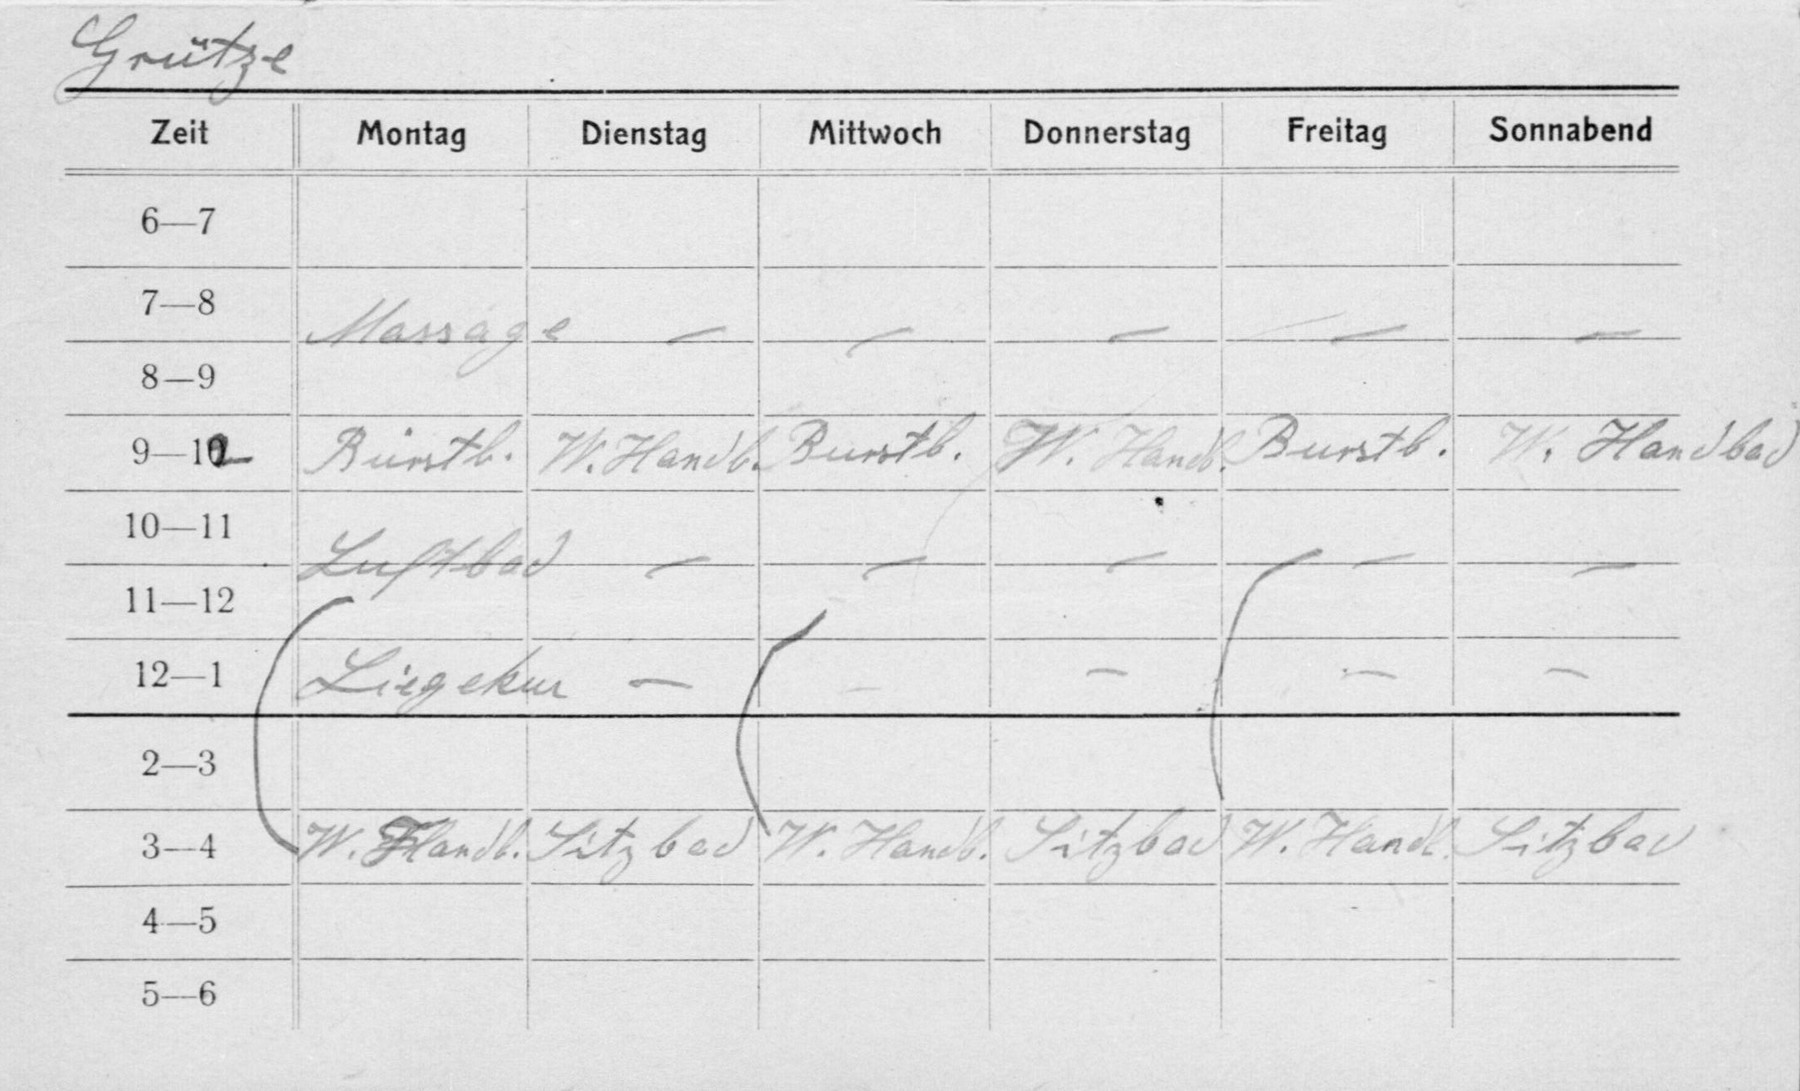 Grütze
Zeit Montag Dienstag Mittwoch Donnerstag Freitag Sonnabend
6—7
7—8
Massage — — — — —
8—9
9—10 Bürstb. W. Handb. Burstb. W. Handb. Burstb. W. Handbad
10—11
Luftbad — — — — —
11—12
12—1 Liegekur — — — — —
2—3
3—4 W. Handb. Sitzbad W. Handb. Sitzbad W. Handb. Sitzbad
4—5
5—6